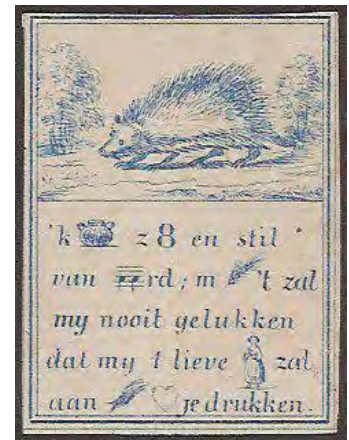 'k z8 en stil
van rd; m 't zal
my nooit gelukken
dat my 1 lieve zal
aan je drukken.